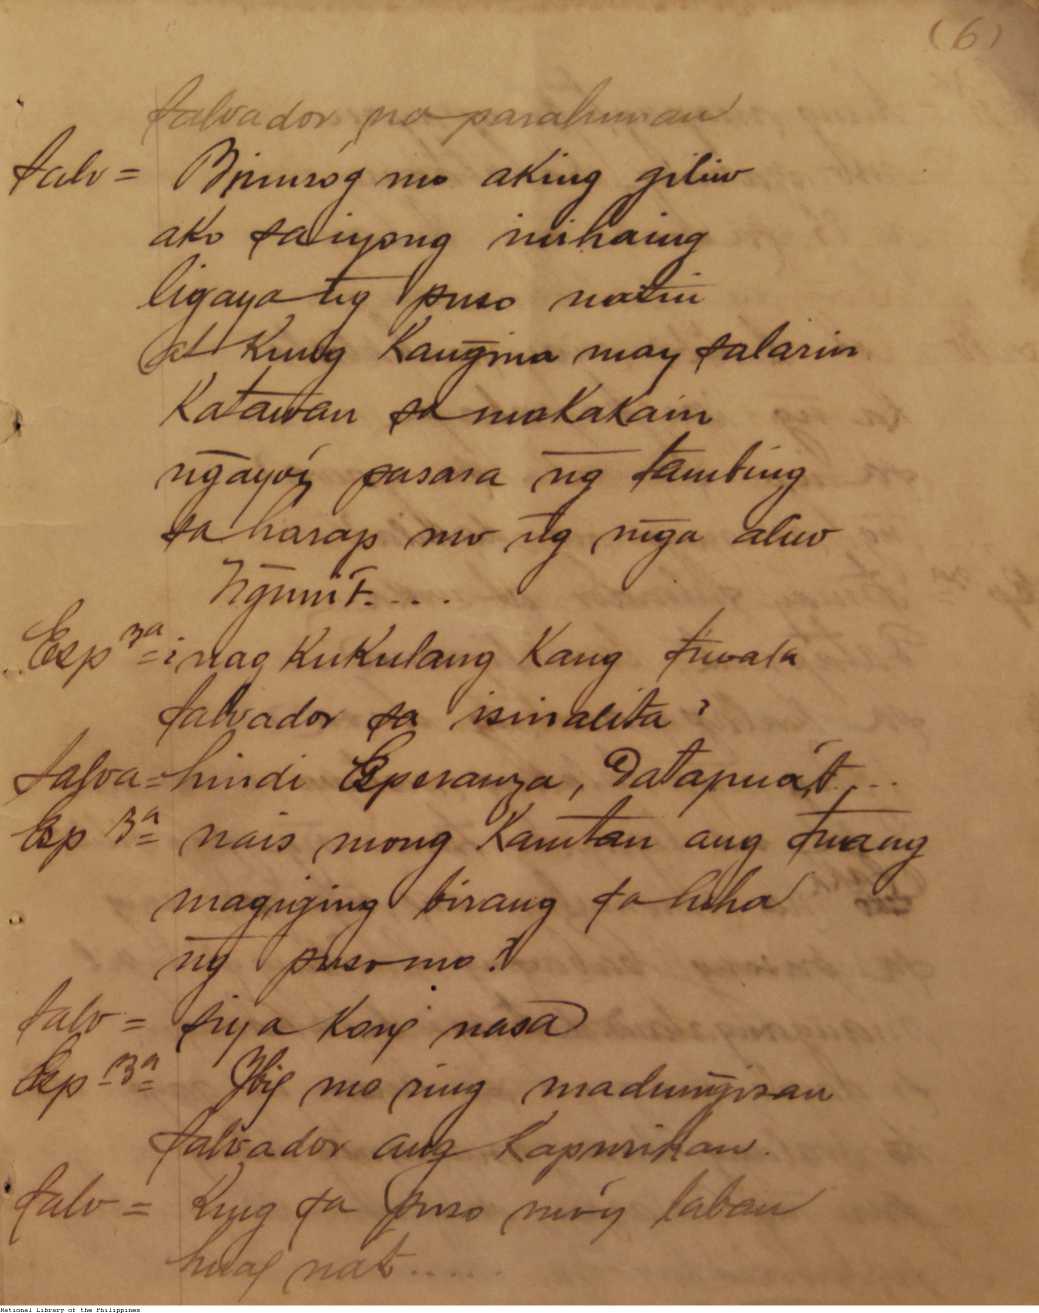 (6)
Salvador na parahuman
Salv = Binusóg mo aking giliw
ako sa iyong inihaing
ligaya ng̃ puso natin
at kung kang̃ina may salarin
katawan sa makakain
ng̃ayo'y sasara ng̃ tambing
sa harap mo ng̃ mg̃a aliw
Ng̃uni't....
Esp 3ª = ¿nag kukulang kang tiwala
Salvador sa isinalita?
Salva = hindi Esperanza, Datapua't....
Esp 3ª = nais mong kamtan ang tuang
magiging birang sa luha
ng̃ puso mo?
Salv = siya kong nasa
Esp 3ª = Ibig mo ring madung̃isan
Salvador ang kapurihan.
Salv = Kung sa puso mo'y laban
huag nat......
National Library of the Philippines